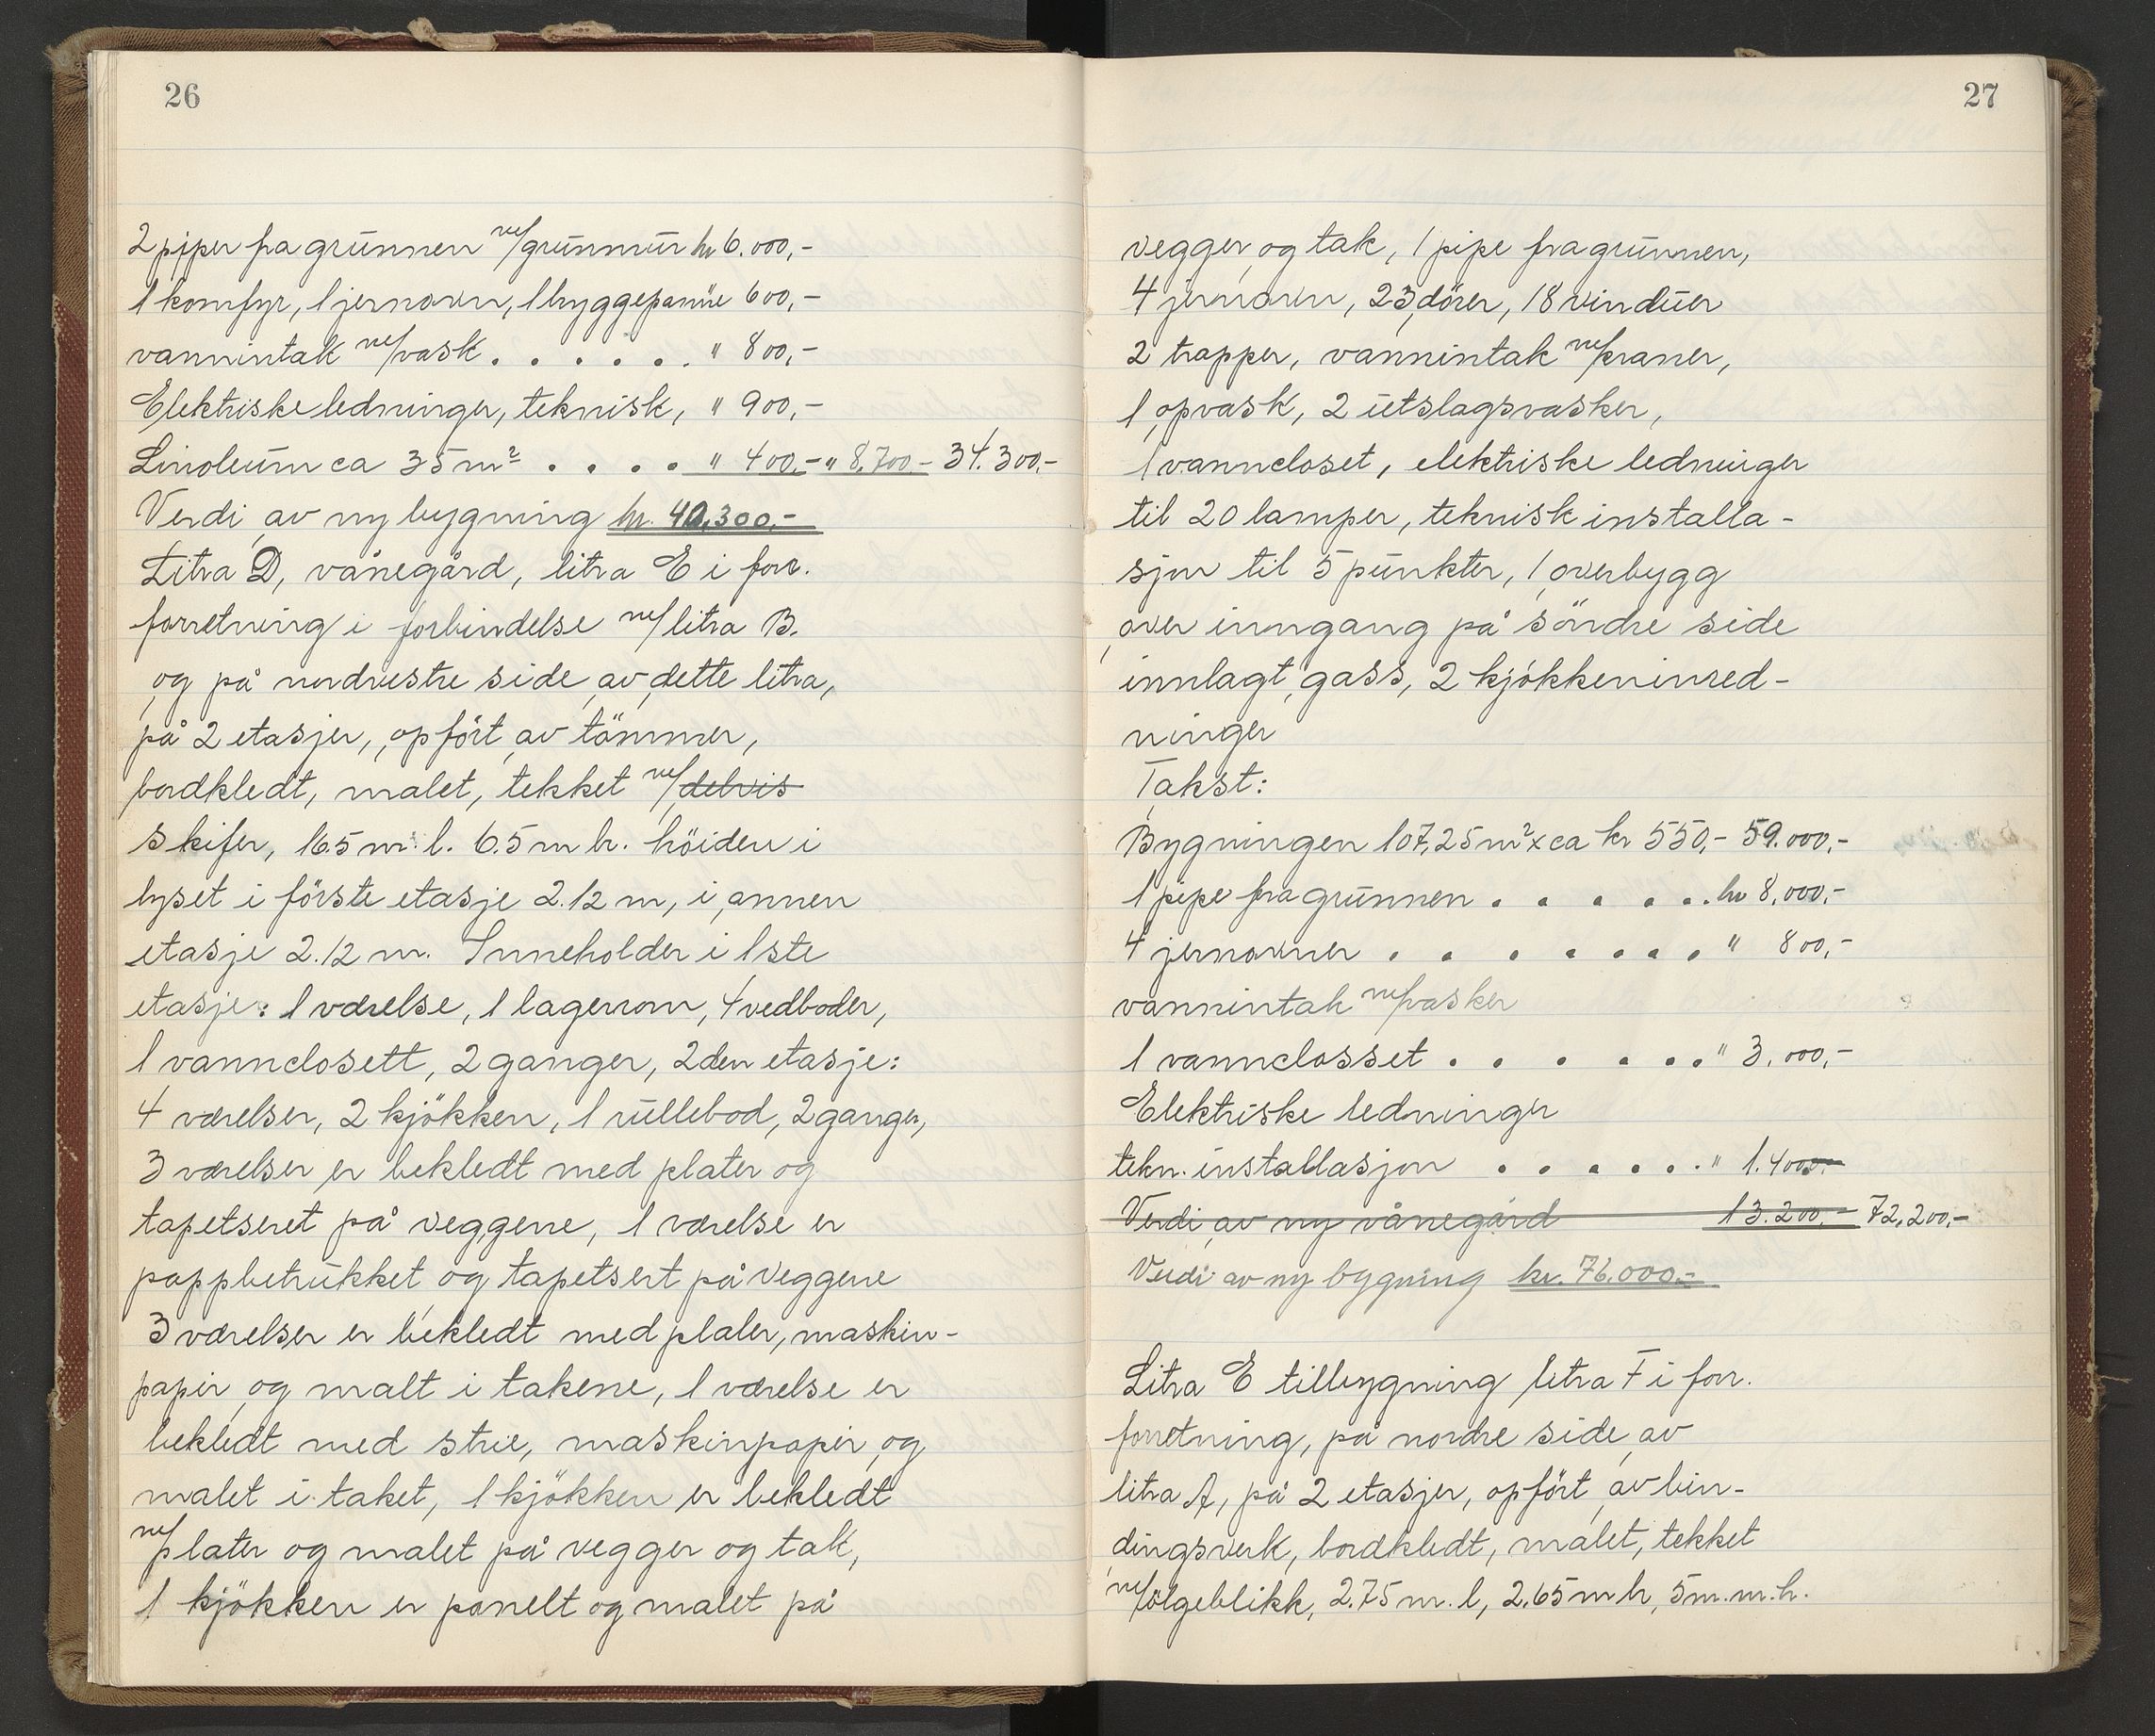 26
2 piper fra grunnen m/grunnmur kr 6.000,-
1 komfyr, 1 jernovn, 1 bryggepanne 600,-
vanninntak m/vask . . . . . . " 800,-
Elektriske ledninger, teknisk, " 900,-
Linoleum ca 35 m² . . . . " 400,- " 8.700,- 34.300,-
Verdi av ny bygning kr. 40.300,-
Litra D, vånegård, litra E i forr.
forretning i forbindelse m/litra B.
og på nordvestre side av dette litra,
på 2 etasjer, opført av tömmer,
bordkledt, malet, tekket m/delvis
skifer, 16.5 m. l. 6.5 m br. höiden i
lyset i förste etasje 2.12 m, i annen
etasje 2.12 m. Inneholder i 1ste
etasje: 1 værelse, 1 lagerrom, 4 vedboder,
1 vannclosett, 2 ganger, 2den etasje:
4 værelser, 2 kjökken, 1 rullebod, 2 ganger,
3 værelser er bekledt med plater og
tapetseret på veggene, 1 værelse er
pappbetrukket og tapetsert på veggene
3 værelser er bekledt med plater, maskin-
papir og malt i takene, 1 værelse er
bekledt med strie, maskinpapir og
malet i taket, 1 kjökken er bekledt
m/plater og malet på vegger og tak,
1 kjökken er panelt og malet på
27
vegger og tak, 1 pipe fra grunnen,
4 jernovn, 23 dörer, 18 vinduer
2 trapper, vanninntak m/kraner,
1 opvask, 2 utslagsvasker,
1 vanncloset, elektriske ledninger
til 20 lamper, teknisk installa-
sjon til 5 punkter, 1 overbygg
over inngang på söndre side
innlagt gass, 2 kjökkeninred-
ninger
Takst:
Bygningen 107,25 m² x ca kr 550,- 59.000,-
1 pipe fra grunnen . . . . . . kr 8.000,-
4 jernovner . . . . . . . . " 800,-
vanninntak m/vasker
1 vannclosset . . . . . . " 3.000,-
Elektriske ledninger
tekn. installasjon . . . . . . " 1.400,-
Verdi av ny vånegård 13.200,- 72.200,-
Verdi av ny bygning kr. 76.000,-
Litra E tilbygning litra F i forr.
forretning, på nordre side av
litra A, på 2 etasjer, opfört av bin-
dingsverk, bordkledt, malet, tekket
m/ölgeblikk, 2.75 m. l, 2.65 m br, 5 m. m. h.